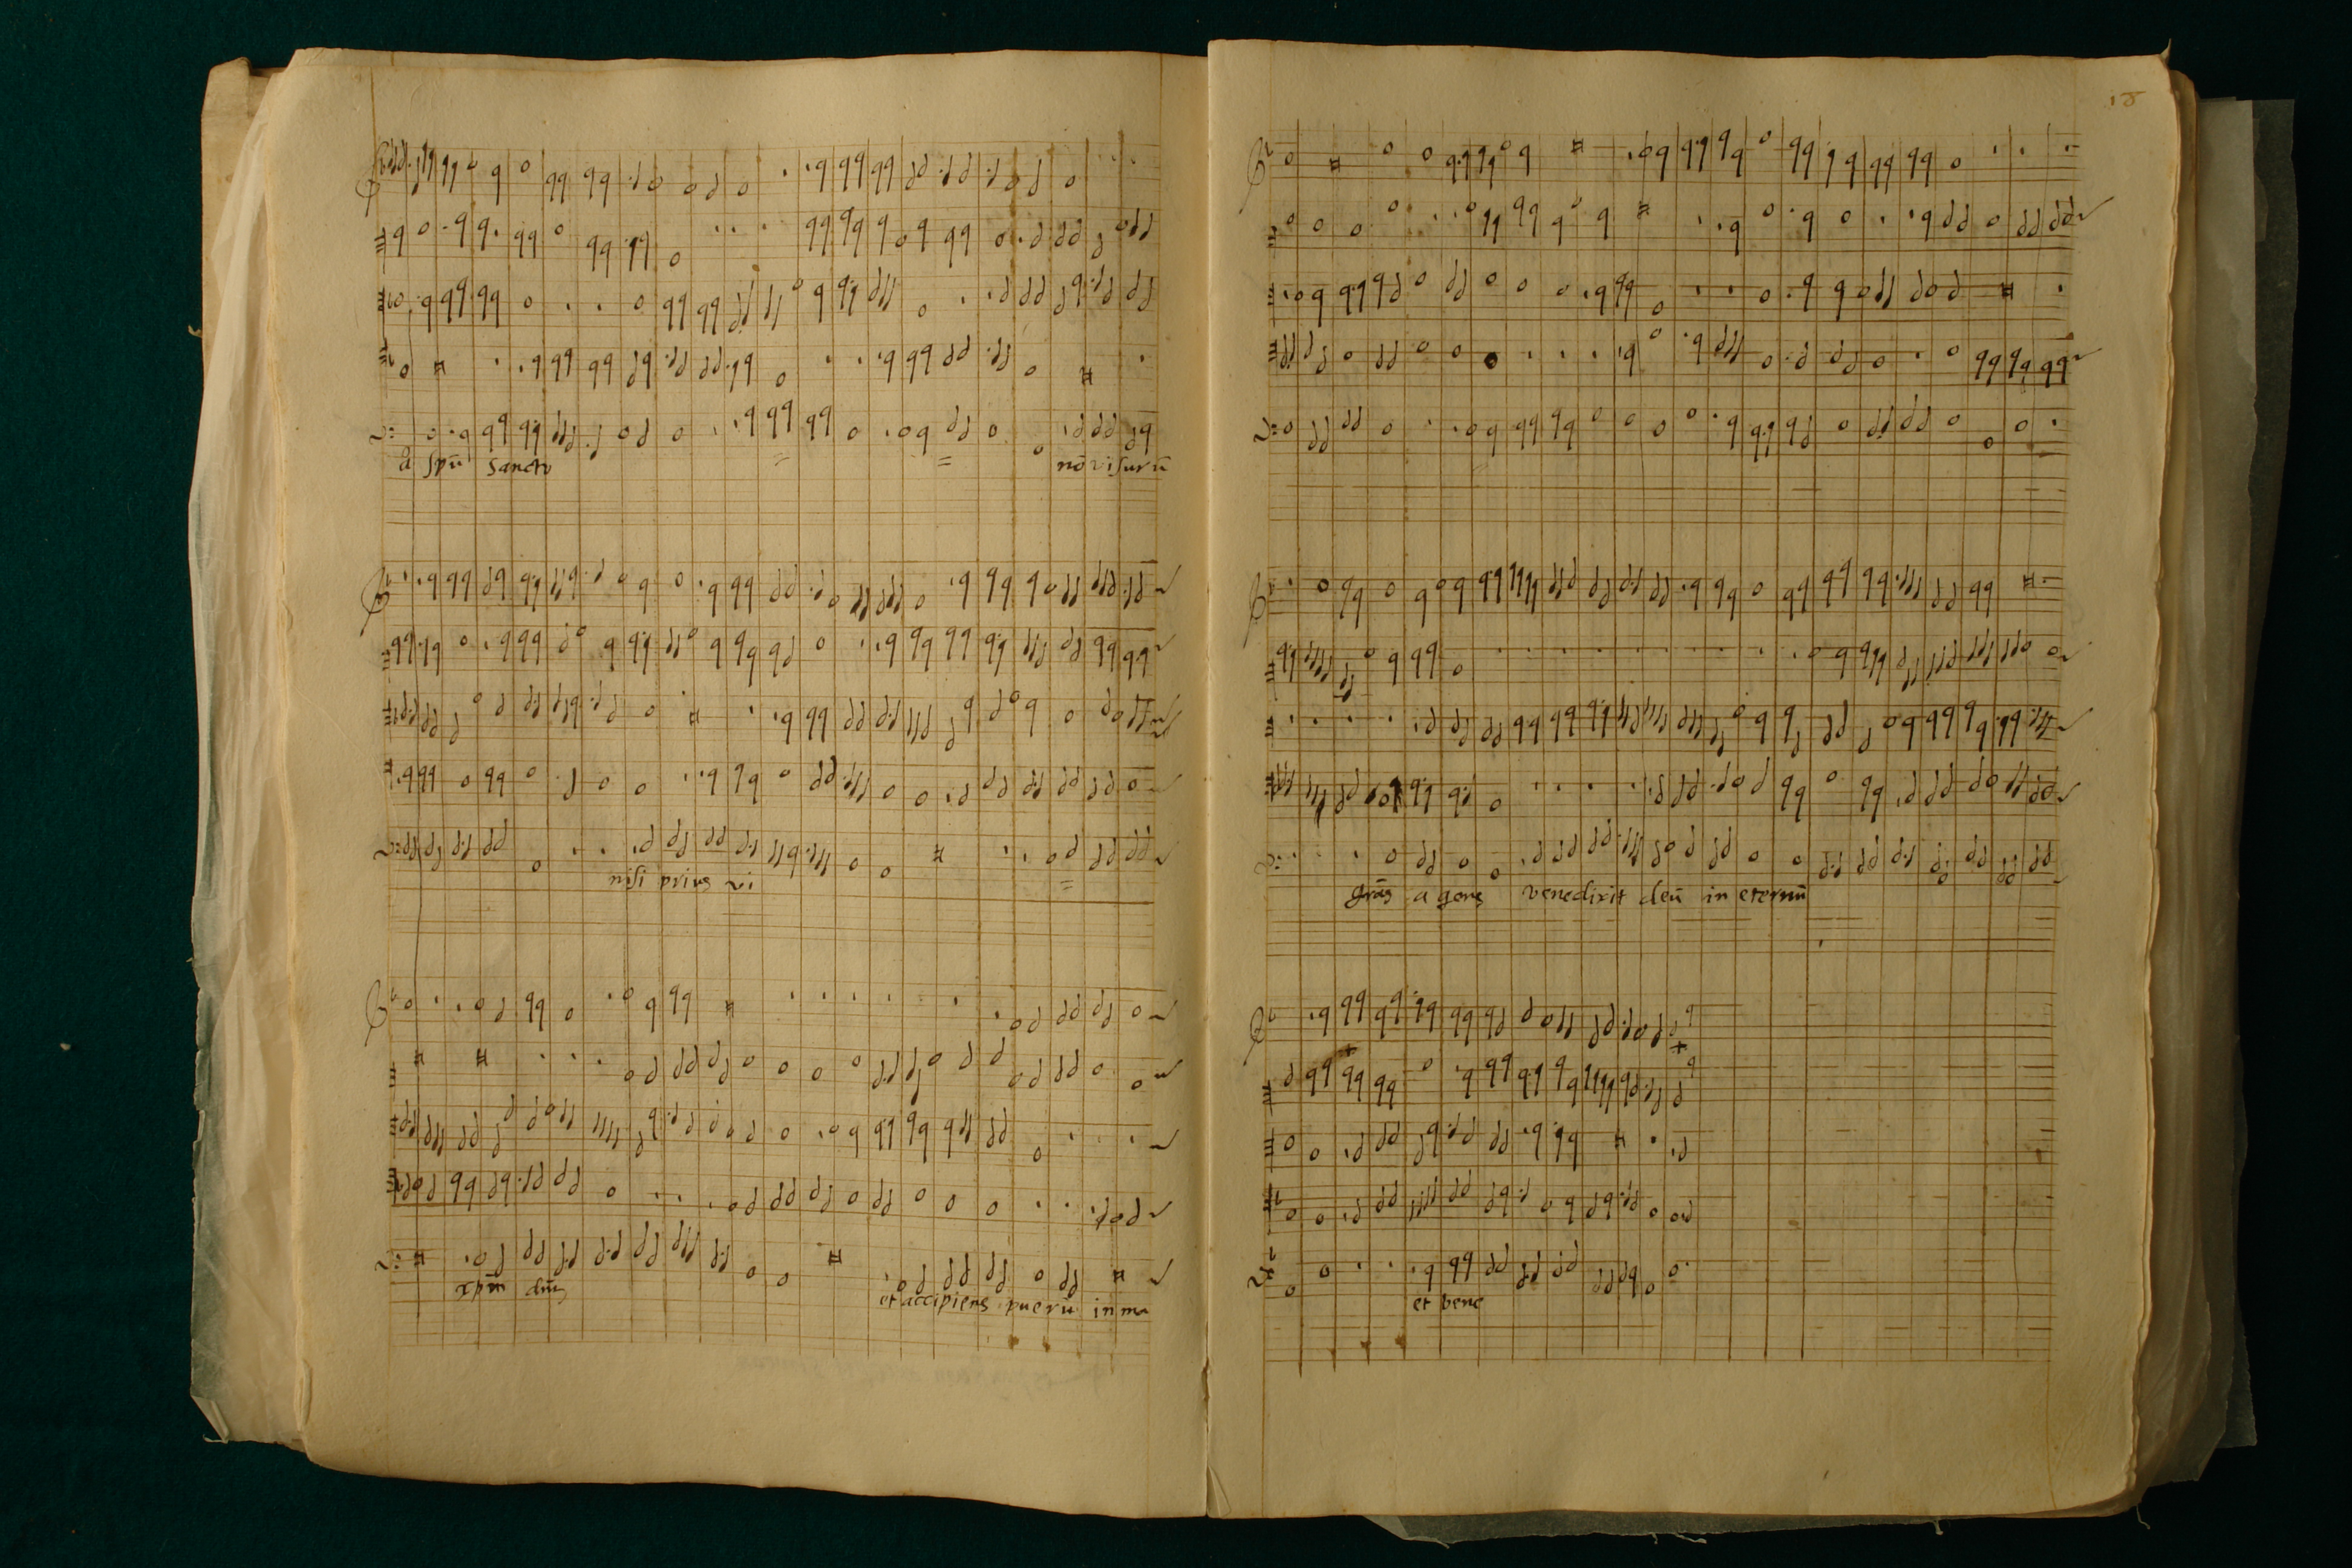 a spū sancto nō visurū
nisi prius vi
xpm̄ dn̄s et accipiens puerū in ma
18
grās agens venedixit deū in eternū
et bene